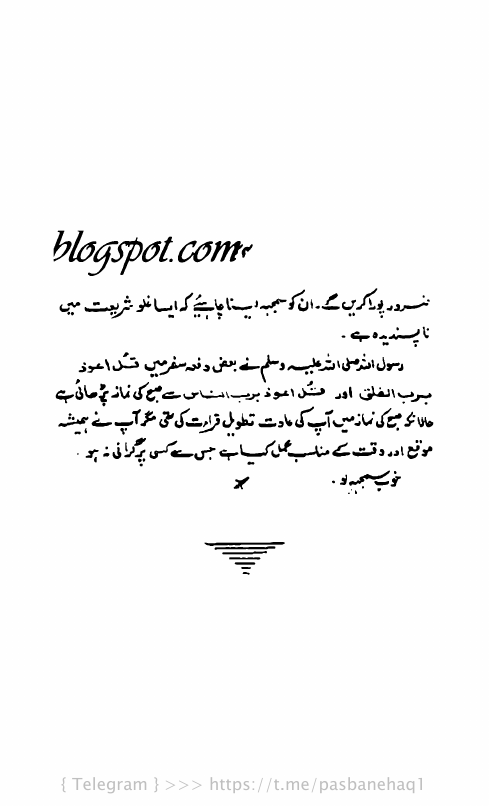 blogspot.com
ضرور پورا کریں گے۔ ان کو سمجھ لینا چاہیئے کہ ایسا غلو شریعت میں
ناپسندیدہ ہے۔
رسول اللہ صلی اللہ علیہ وسلم نے بعض دفعہ سفر میں قُل اعوذ
برب الفلق اور قُل اعوذ برب الناس سے صبح کی نماز پڑھائی ہے
حالانکہ صبح کی نماز میں آپ کی عادت تطویل قراءت کی تھی مگر آپ نے ہمیشہ
موقع اور وقت کے مناسب عمل کیا ہے جس سے کسی پر گرانی نہ ہو۔
خوب سمجھ لو۔
{ Telegram } >>> https://t.me/pasbanehaq1